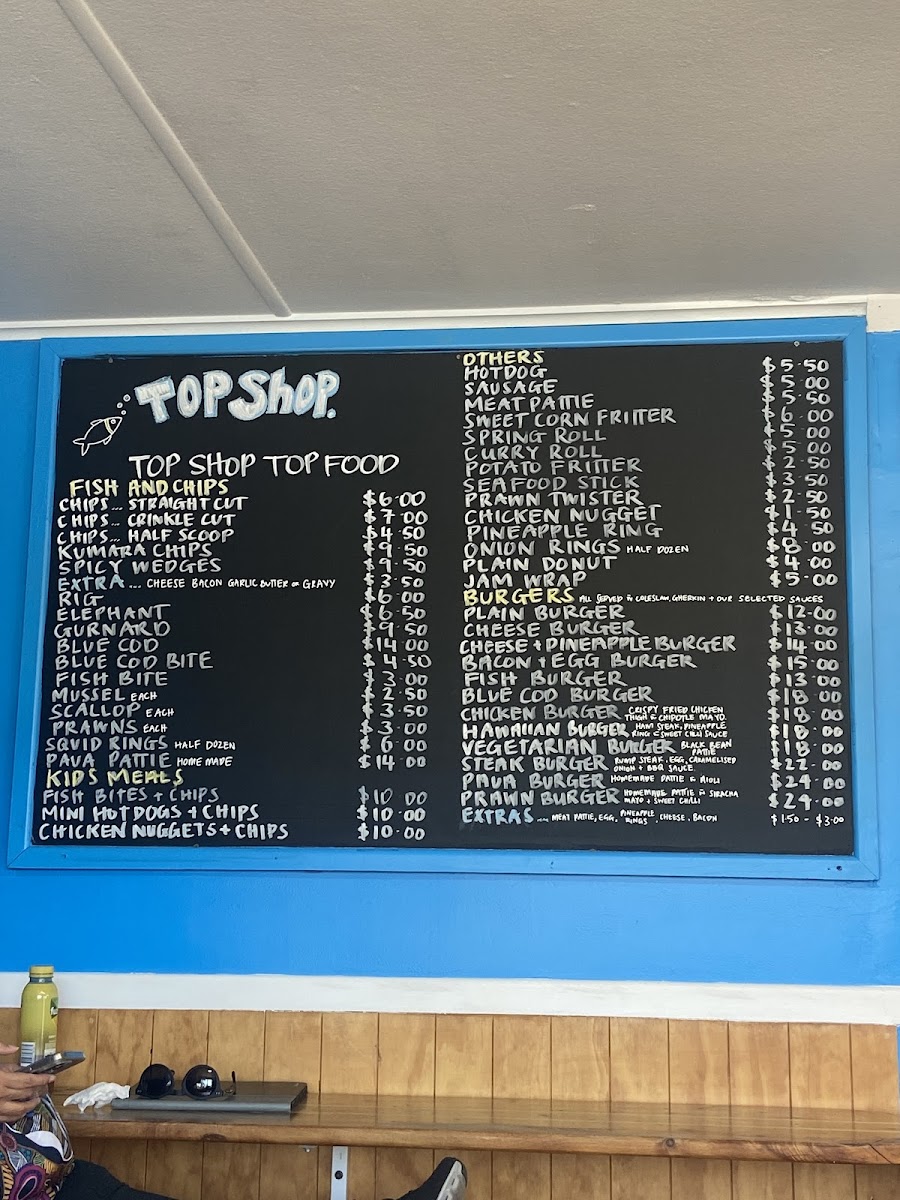 TOP SHOP.
TOP SHOP TOP FOOD
FISH AND CHIPS
CHIPS... STRAIGHT CUT $6.00
CHIPS... CRINKLE CUT $7.00
CHIPS... HALF SCOOP $4.50
KUMARA CHIPS $9.50
SPICY WEDGES $9.50
EXTRA... CHEESE BACON GARLIC BUTTER OR GRAVY $3.50
RIG $6.00
ELEPHANT $6.50
GURNARD $9.50
BLUE COD $14.00
BLUE COD BITE $4.50
FISH BITE $3.00
MUSSEL EACH $2.50
SCALLOP EACH $3.50
PRAWNS EACH $3.00
SQUID RINGS HALF DOZEN $6.00
PAUA PATTIE HOME MADE $14.00
KIDS MEALS
FISH BITES + CHIPS $10.00
MINI HOT DOGS + CHIPS $10.00
CHICKEN NUGGETS + CHIPS $10.00
OTHERS
HOTDOG $5.50
SAUSAGE $5.00
MEAT PATTIE $5.50
SWEET CORN FRITTER $6.00
SPRING ROLL $5.00
CURRY ROLL $5.00
POTATO FRITTER $2.50
SEAFOOD STICK $3.50
PRAWN TWISTER $2.50
CHICKEN NUGGET $1.50
PINEAPPLE RING $4.50
ONION RINGS HALF DOZEN $8.00
PLAIN DONUT $4.00
JAM WRAP $5.00
BURGERS ALL SERVED COLESLAW, GHERKIN + OUR SELECTED SAUCES
PLAIN BURGER $12.00
CHEESE BURGER $13.00
CHEESE + PINEAPPLE BURGER $14.00
BACON + EGG BURGER $15.00
FISH BURGER $13.00
BLUE COD BURGER $18.00
CHICKEN BURGER CRISPY FRIED CHICKEN THIGH & CHIPOTLE MAYO. $18.00
HAWAIIAN BURGER HAM STEAK, PINEAPPLE RING & SWEET CHILLI SAUCE $18.00
VEGETARIAN BURGER BLACK BEAN PATTIE $18.00
STEAK BURGER RUMP STEAK, EGG, CARAMELISED ONION + BBQ SAUCE $22.00
PAUA BURGER HOMEMADE PATTIE & AIOLI $24.00
PRAWN BURGER HOMEMADE PATTIE SIRACHA MAYO + SWEET CHILLI $24.00
EXTRAS.... MEAT PATTIE, EGG, PINEAPPLE RINGS, CHEESE, BACON $1.50 - $3.00